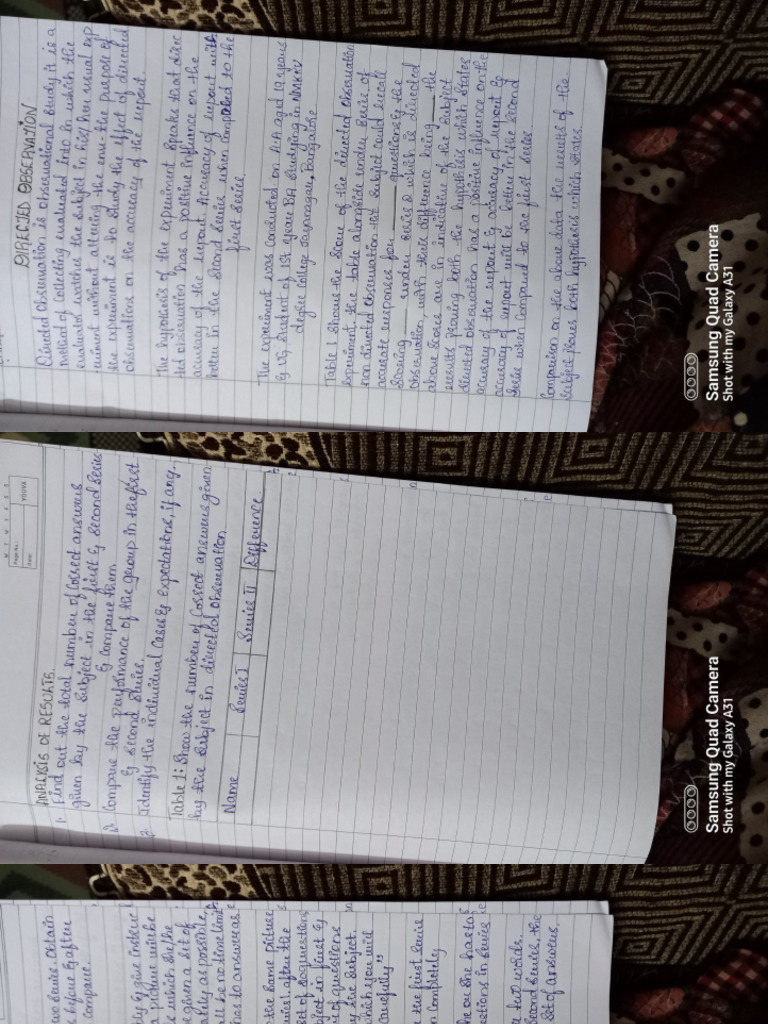 DIRECTED OBSERVATION
Directed Observation is Observational Study It is a
method of collecting evaluated into in which the
evaluator watches the Subject in his/her usual
without altering the the purpose of
the experiment is to Study the effect of directed
observations on the accuracy of the report.
The hypothesis of the experiment speaks that direc
ted observation has a positive influence on the
accuracy of the report. Accuracy of report with
better in the Second Series when compared to the
first Series
The experiment was conducted on A.A aged 19 years
Student of 1st years BA Studying in
degree College Jayanagar, Bangalore
Table 1 Shows the Score of the directed observation
experiment. the table alongside under Series of
non directed observation that Subject could recall
accurate responses for ____ questions & the
Scoring ____ under Series 2 which is directed
observation, with their difference being ____ the
above Scores are in indicative of the Subject
results proving both the hypothesis which States
directed observation has a positive influence on the
accuracy of the report & accuracy of report &
accuracy of report will be better in the Second
Series when compound to the first Series
Comparison on the above data the results of the
Subject proves both hypothesis which States.
Samsung Quad Camera
Shot with my Galaxy A31
M T W T F S S
Page No.:
Date:
YOUVA
ANALYSIS OF RESULTS.
1. Find out the total number of Correct answers
given by the Subject in the first & Second Series
& Compare them
2. Compare the performance of the group in the first
& Second Series.
3. Identify the individual Cases & expectations, if any.
Table 1: Show the number of Correct answers given
by the Subject in directed observation.
Name Series I Series II Difference
Samsung Quad Camera
Shot with my Galaxy A31
two Series. Obtain
before & after
Compare.
& give instruc
a picture will be
which
given a set of
as possible,
be no time limit
has to answer as
the Same picture
after the
Set of 20 questions
in first &
of questions
the Subject.
which you will
Carefully"
the first Series
Completely
he or She has to
questions in Series
two words
Second Series, the
Set of answers.